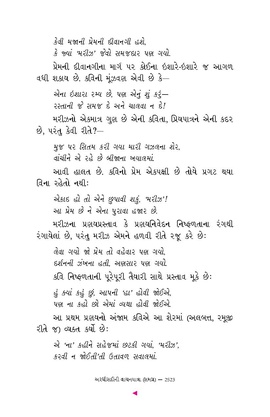 કેવી મજાની પ્રેમની દીવાનગી હશે,
કે જ્યાં 'મરીઝ' જેવો સમજદાર પણ ગયો.
પ્રેમની દીવાનગીના માર્ગ પર કોઈના ઇશારે-ઇશારે જ આગળ
વધી શકાય છે. કવિની મૂંઝવણ એવી છે કે—
એના ઇશારા રમ્ય છે, પણ એનું શું કરું—
રસ્તાની જે સમજ દે અને ચાલવા ન દે!
મરીઝનો એકમાત્ર ગુણ છે એની કવિતા, પ્રિયપાત્રને એની કદર
છે, પરંતુ કેવી રીતે?—
મુજ પર સિતમ કરી ગયા મારી ગઝલના શેર,
વાંચીને એ રહે છે બીજાના ખયાલમાં
આવી હાલત છે. કવિનો પ્રેમ એકપક્ષી છે તોયે પ્રગટ થયા
વિના રહેતો નથીઃ
એકાદ હો તો એને છુપાવી શકું, 'મરીઝ'!
આ પ્રેમ છે ને એના પુરાવા હજાર છે.
મરીઝના પ્રણયપ્રસ્તાવ કે પ્રણયનિવેદન નિષ્ફળતાના રંગથી
રંગાયેલાં છે, પરંતુ મરીઝ એમને હળવી રીતે રજૂ કરે છેઃ
લેવા ગયો જો પ્રેમ તો વહેવાર પણ ગયો,
દર્શનની ઝંખના હતી, અણસાર પણ ગયો.
કવિ નિષ્ફળતાની પૂરેપૂરી તૈયારી સાથે પ્રસ્તાવ મૂકે છેઃ
હું ક્યાં કહું છું, આપની 'હા' હોવી જોઈએ,
પણ ના કહો છો એમાં વ્યથા હોવી જોઈએ.
આ પ્રથમ પ્રણયનો અંજામ કવિએ આ શેરમાં (અલબત્ત, રમૂજી
રીતે જ) વ્યક્ત કર્યો છેઃ
એ 'ના' કહીને સહેજમાં છટકી ગયાં, 'મરીઝ',
કરવી ન જોઈતી'તી ઉતાવળ સવાલમાં.